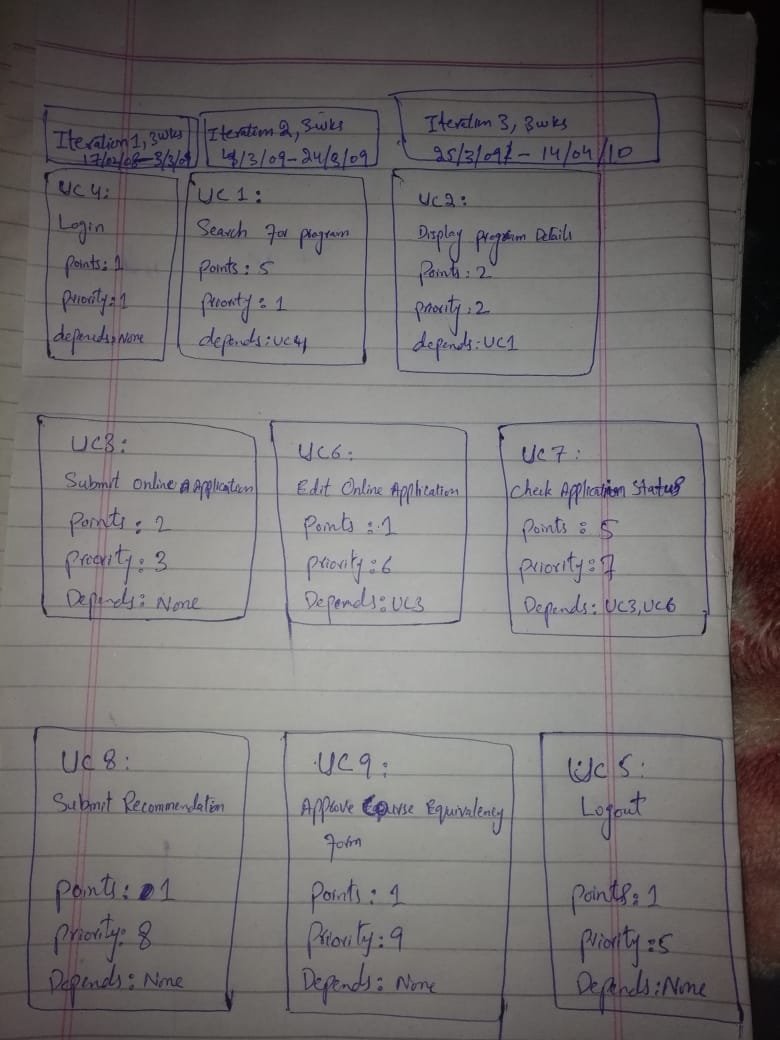 Iteration 1, 3wks
Iteration 2, 3wks
4/3/09-24/3/09
Iteration 3, 3wks
25/3/09 - 14/04/10
UC4:
Login
points: 1
priority: 1
depends: None
UC1:
Search for program
points: 5
priority: 1
depends: UC4
UC2:
Display program Details
Points: 2
priority: 2
depends: UC1
UC3:
Submit Online Application
Points: 2
Priority: 3
Depends: None
UC6:
Edit Online Application
Points: 1
priority: 6
Depends: UC3
UC7:
Check Application Status
points: 5
priority: 7
Depends: UC3, UC6
UC8:
Submit Recommendation
points: 1
priority: 8
Depends: None
UC9:
Approve Course Equivalency
form
Points: 1
Priority: 9
Depends: None
UC5:
Logout
points: 1
priority: 5
Depends: None